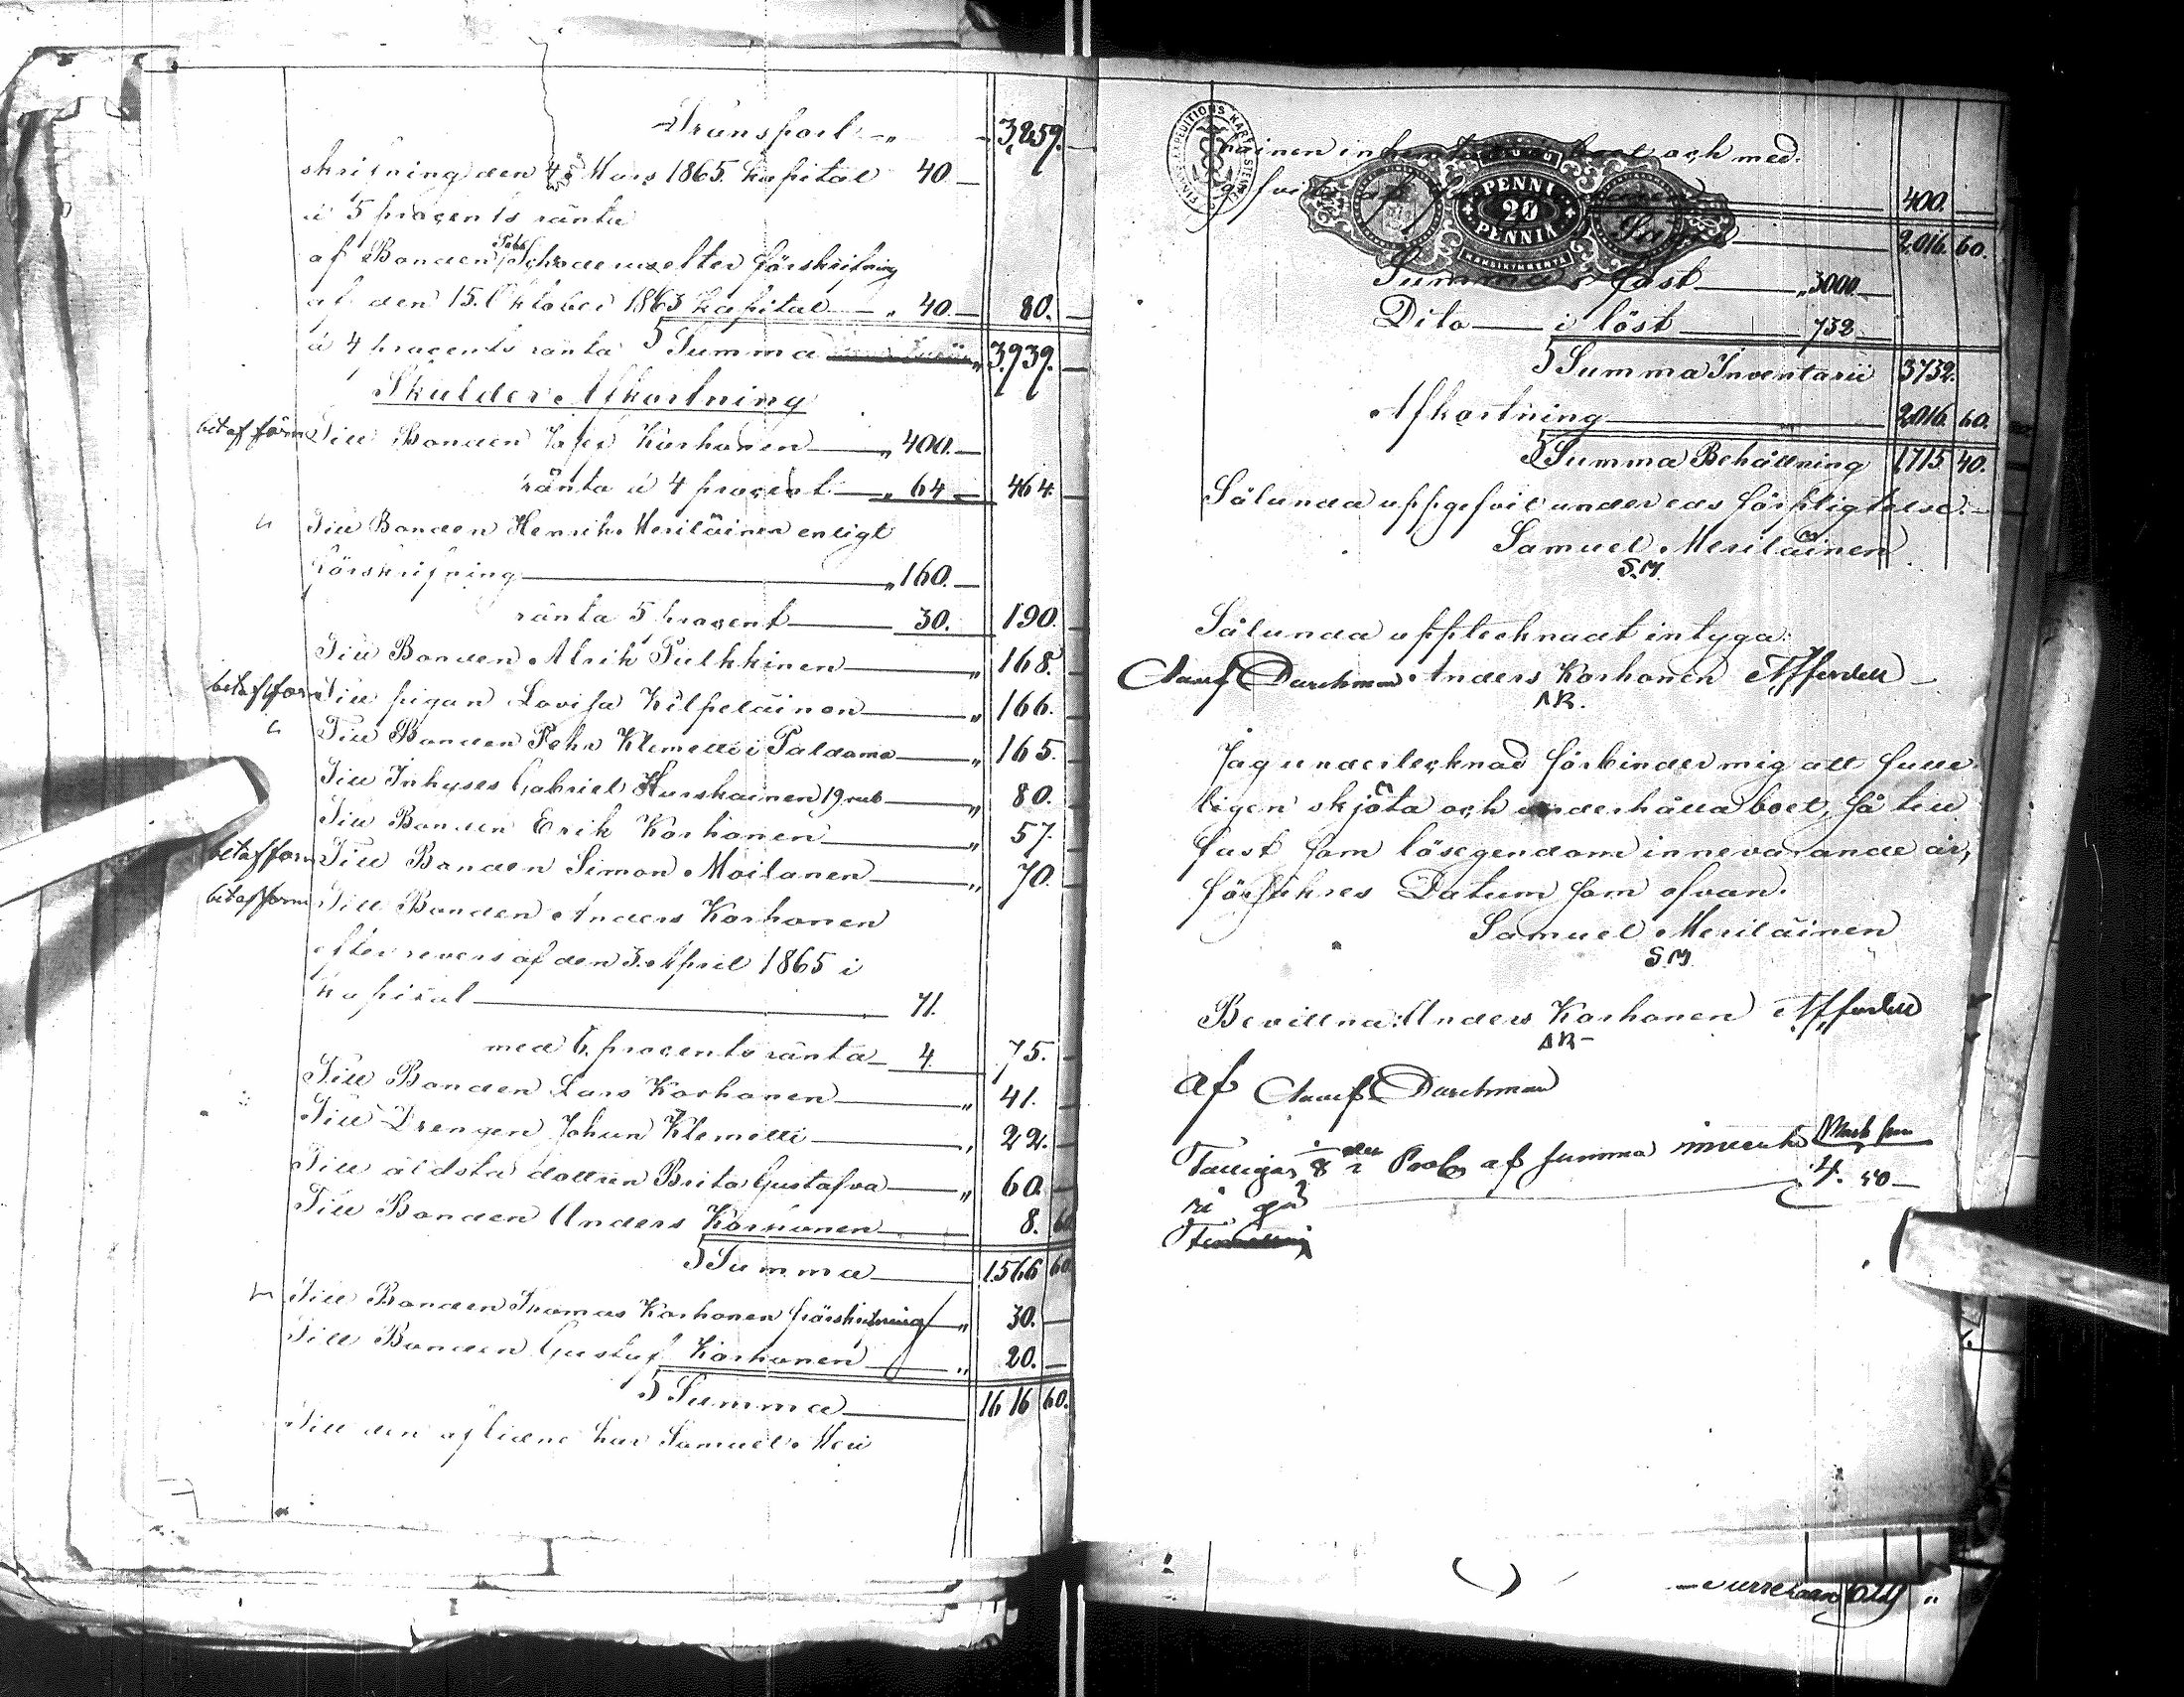 Transport „ — 3,859. —
skrifning den 4 Mars 1865. kapital 40 —
à 5 procents ränta
af Bonden Pehr Schroderus efter förskrifning
af den 15. Oktober 1863 kapital — „ 40. — 80. —
à 4 procents ränta Summa „ 3,939. —
Skulder Afkortning
bet af förm Till Bonden Korhonen — „ 400. —
ränta à 4 procent — „ 64 — 464. —
„ Till Bonden Henrik Meriläinen enligt
förskrifning — „ 160. —
ränta 5 procent — 30. 190. —
Till Bonden Alrik Pulkkinen — „ 168. —
bet af förm Till pigan Lovisa Kilpeläinen — „ 166. —
„ Till Bonden Pehr Klemetti i Paldamo — „ 165. —
Till Inhyses Gabriel Hurskainen 19 rub — „ 80. —
Till Bonden Erik Korhonen — „ 57. —
bet af förm Till Bonden Simon Moilanen — „ 70. —
bet af förm Till Bonden Anders Korhonen
efter revers af den 3. April 1865 i
kapital — 71.
med 6. procents ränta — 4. 75. —
Till Bonden Lars Korhonen — „ 41. —
Till Drengen Johan Klemetti — „ 22. —
Till äldsta dottren Brita Gustafva — „ 60. —
Till Bonden Anders Korhonen — 8. 60
Summa — 1566 60
Till Bonden Thomas Korhonen förskrifning — „ 30. —
Till Bonden Gustaf Korhonen — „ 20. —
Summa — 1616 60.
Till den aflidne har Samuel Meri
FINSKA EXPEDITIONS KARTA
läinen och med
400.
PENNI
20
PENNIÄ
2,016. 60.
Summa i fast — „ 3000 —
Dito — i löst — 732 —
Summa Inventarii 3732.
Afkortning — 2,016. 60.
Summa Behållning 1,715. 40.
Sålunda uppgifvit under eds förpligtelse. —
Samuel Meriläinen
S.M.
Sålunda upptecknadt intyga:
Durchman Anders Korhonen
AK.
Jag undertecknad förbinder mig att full-
ligen skjöta och underhålla boet, så till
fast som lösegendom innevarande år,
försäkres Datum som ofvan.
Samuel Meriläinen
S.M.
Bevittna: Anders Korhonen
AK —
af Durchman
af summa
4. 50 —